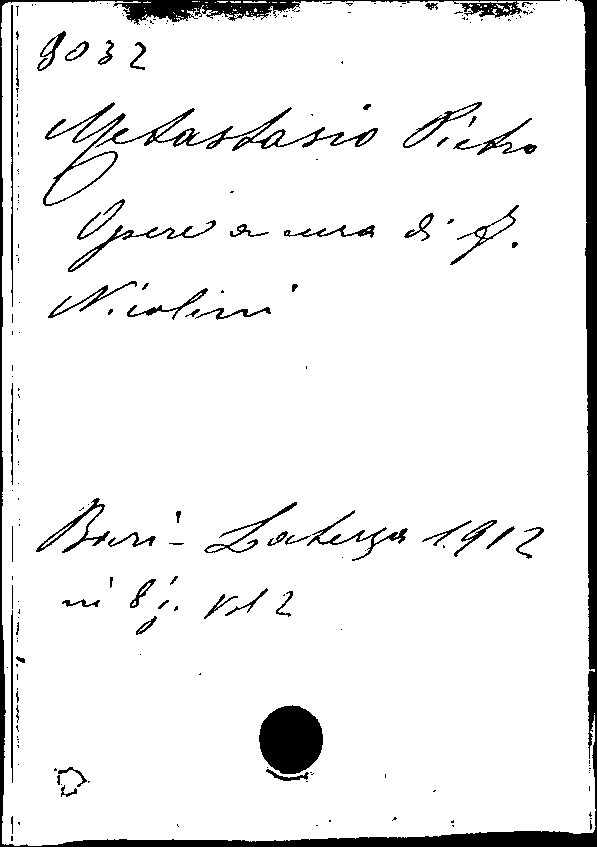 8032
Metastasio Pietro
Opere a cura di F.
Nicolini
Bari - Laterza 1912
in 8 g. Vol 2